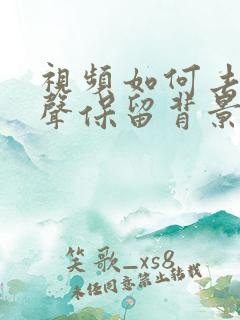 視頻如何去
聲保留背景
笑歌_xs8
未经同意禁止转载